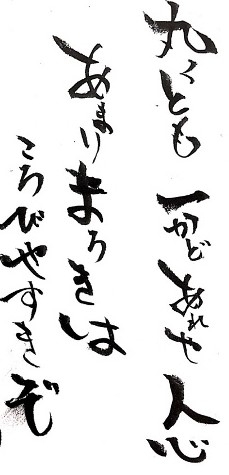 丸くとも一かどあれや人心
あまりまろきは
ころびやすきぞ